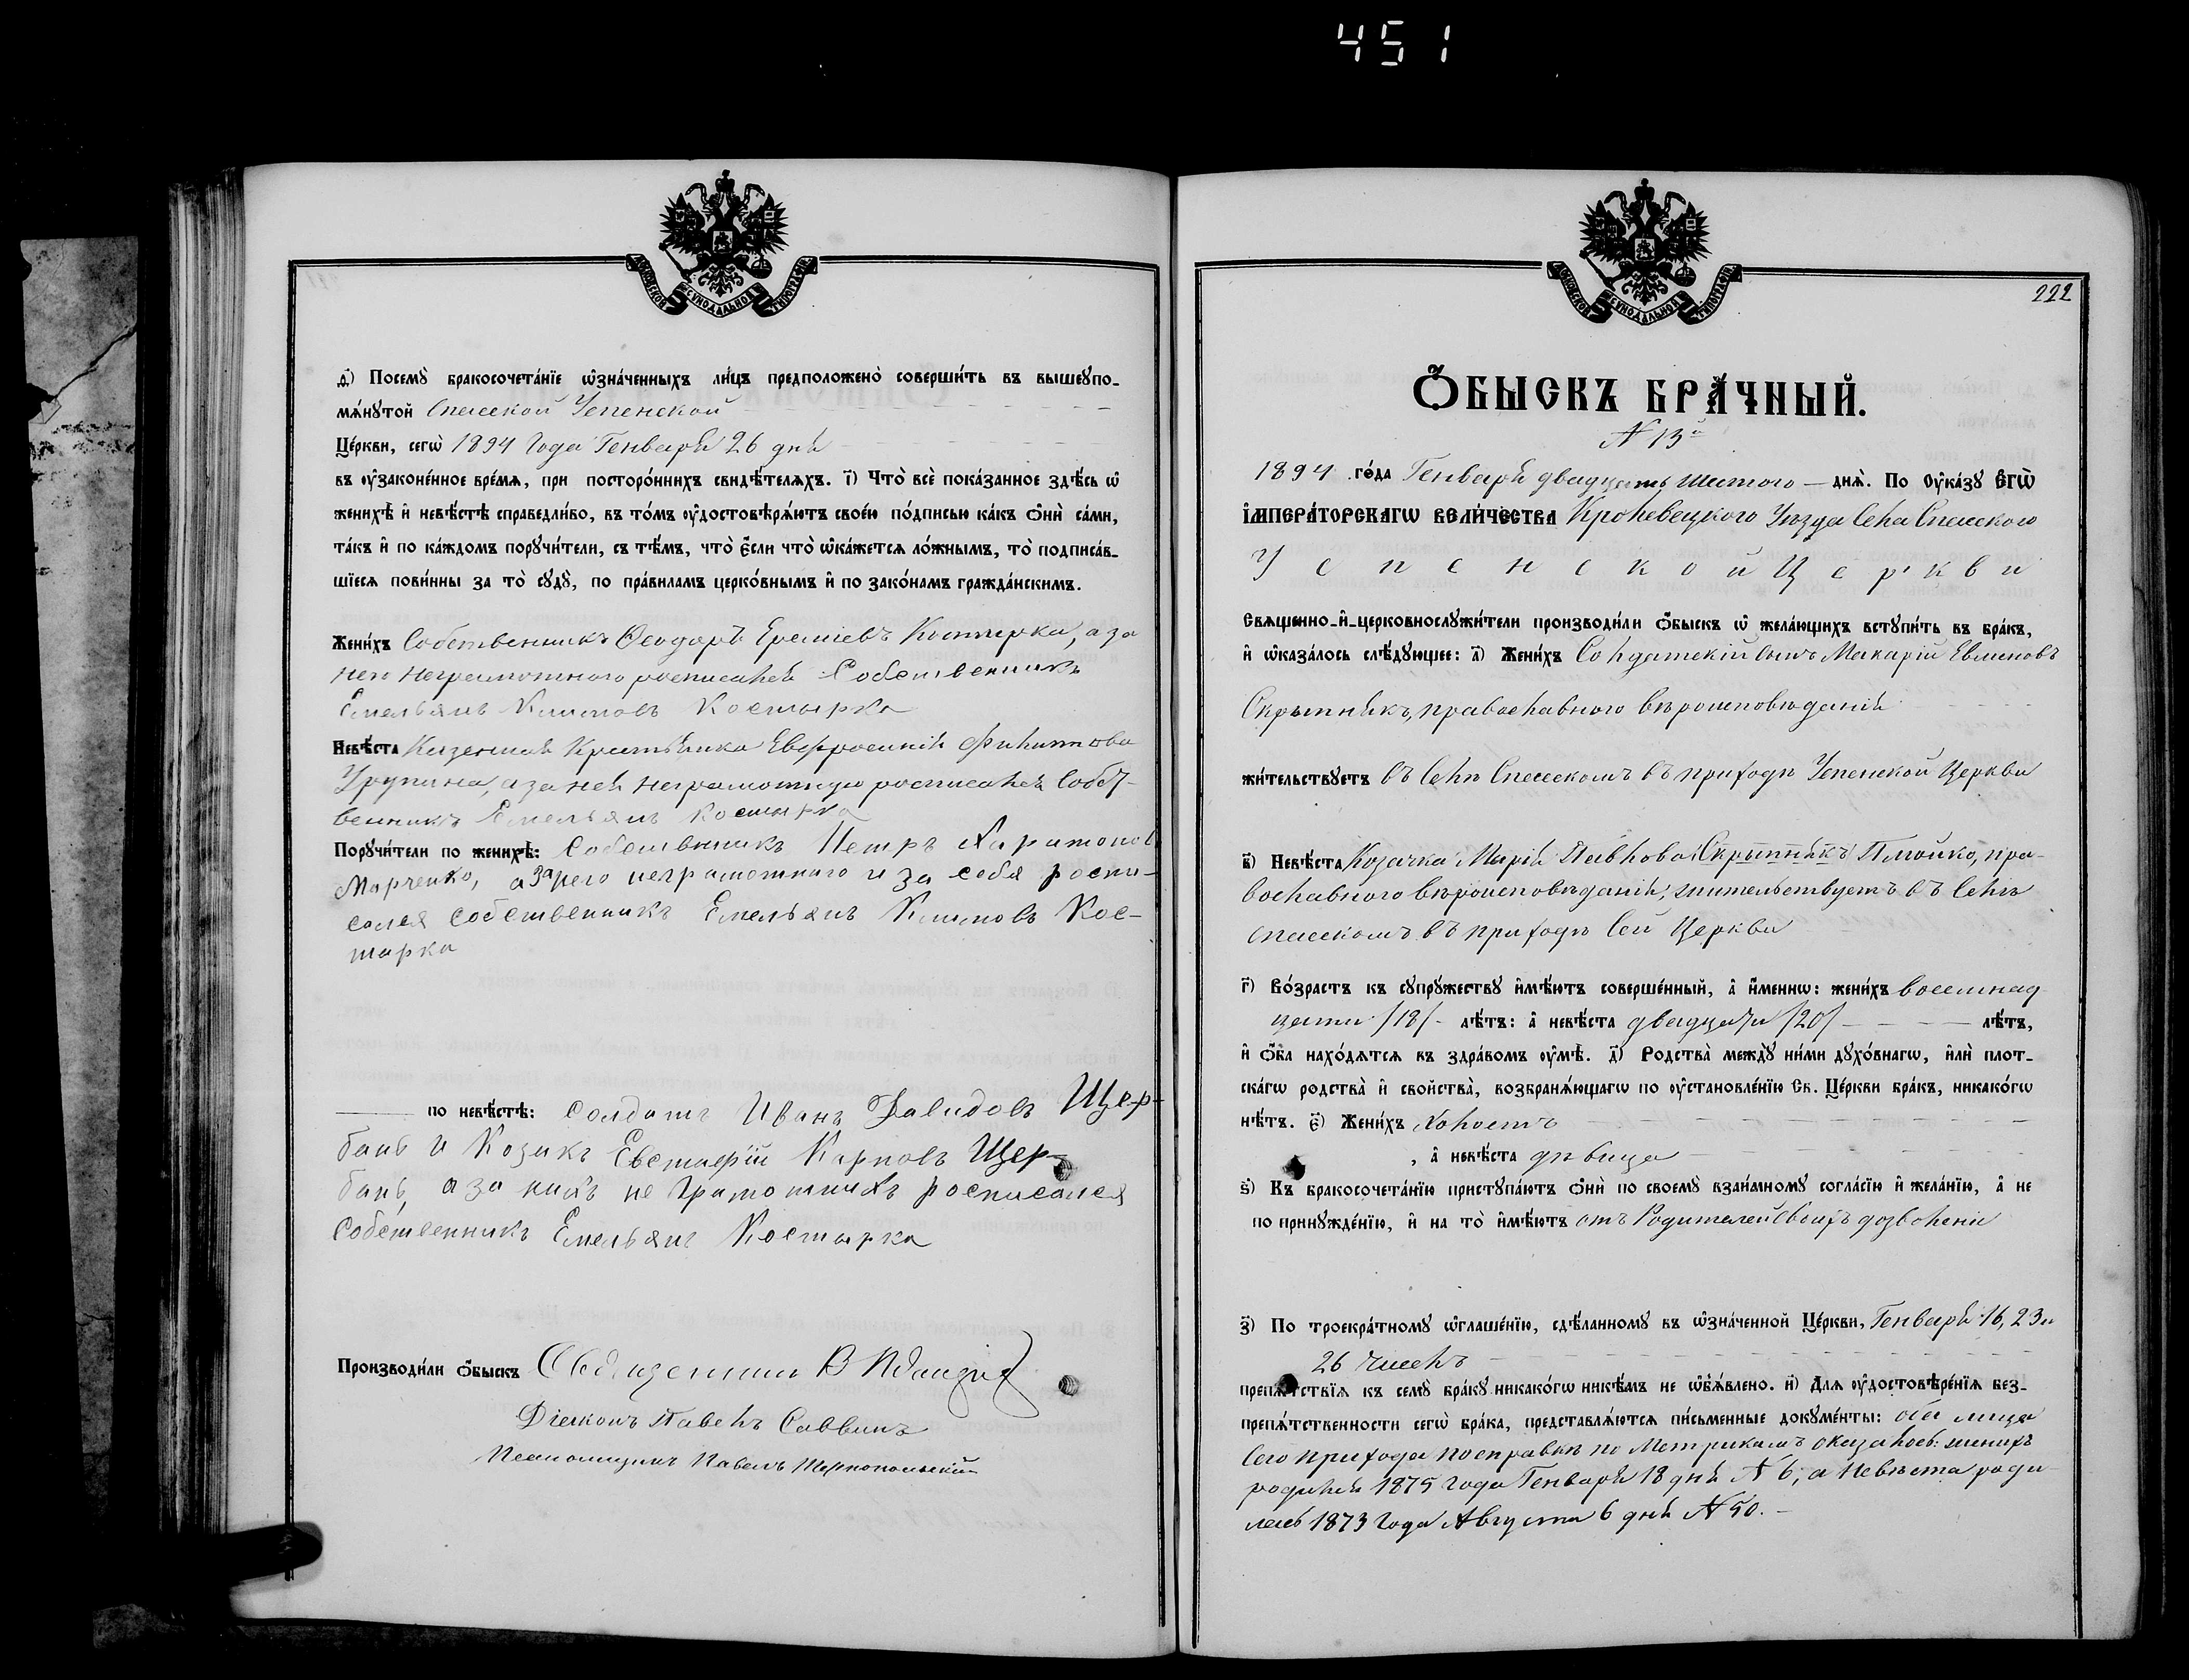 451
МОСКОВСКОЙ СѴНОДАЛЬНОЙ ТИПОГРАФІИ
д҃і) Посемꙋ̀ бракосочета́нїе ѡ҆зна́ченныхъ ли́цъ предположено̀ соверши́ть въ вышеꙋпо-
мѧ́нꙋтой Спасской Успенской
Це́ркви, сегѡ̀ 1894 Года Генваря 26 дня
въ ᲂу҆законе́нное вре́мѧ, при посторо́ннихъ свидѣ́телѧхъ. і҃) Что̀ всѐ пока́занное здѣ́сь ѡ҆
женихѣ̀ и҆ невѣ́стѣ справедли́во, въ то́мъ ᲂу҆достовѣрѧ́ютъ свое́ю по́дписью ка́къ ѻ҆нѝ са́ми,
та́къ и҆ по ка́ждомъ порꙋчи́тели, съ тѣ́мъ, что̀ є҆́сли что̀ ѡ҆ка́жетсѧ ло́жнымъ, то̀ подписа́в-
шїесѧ пови́нны за то̀ сꙋдꙋ̀, по пра́виламъ церко́внымъ и҆ по зако́намъ гражда́нскимъ.
Жени́хъ Собственникъ Ѳеодоръ Ереміевъ Костырка, а за
него неграмотного росписался Собственникъ
Емельянъ Климовъ Костырка
Невѣ́ста Казенная Крестьянка Евфросинія Филипова
Урупина, а за нея неграмотную росписался Собст-
венникъ Емельянъ Костырка
Порꙋчи́тели по женихѣ̀: Собственникъ Петръ Харитоновъ
Марченко, а за него неграмотного и за себя роспи-
сался собственникъ Емельянъ Климовъ Кос-
тырка
по невѣ́стѣ: солдатъ Иванъ Давидовъ Щер-
бань и Козакъ Евстафій Карповъ Щер-
бань, а за нихъ не грамотныхъ росписался
Собственникъ Емельянъ Костырка
Производи́ли ѻ҆́быскъ Священникъ В
Діяконъ Павелъ Саввинъ
Псаломщикъ Павелъ
МОСКОВСКОЙ СѴНОДАЛЬНОЙ ТИПОГРАФІИ
222
Ѻ҆́БЫСКЪ БРА́ЧНЫЙ.
N 13й
1894 го́да Генваря двадцать шестого — днѧ̀. По ᲂу҆ка́зꙋ Є҆гѡ̀
І҆мпера́торскагѡ Вели́чества Кролевецкого Уѣзда Села Спасского
Успенской Церкви
Свѧщенно-и҆-церковнослꙋжи́тели производи́ли ѻ҆́быскъ ѡ҆ жела́ющихъ встꙋпи́ть въ бра́къ,
и҆ ѡ҆каза́лось слѣ́дꙋющее: а҃) Жени́хъ Солдатскій Сынъ Макарій Евменовъ
Скрыпникъ, православного вѣроисповѣданія
жи́тельствꙋетъ въ Селѣ Спасскомъ въ приходѣ Успенской Церкви
в҃) Невѣ́ста Козачка Марія Павлова Скрыпникъ Плюйко, пра-
вославного вѣроисповѣданія, жительствуетъ въ Селѣ
Спасскомъ въ приходѣ Сей Церкви
г҃) Во́зрастъ къ сꙋпрꙋ́жествꙋ и҆мѣ́ютъ соверше́нный, а҆ и҆́меннѡ: жени́хъ восемнад
цати /18/ - лѣ́тъ: а҆ невѣ́ста двадцати /20/ — лѣ́тъ,
и҆ ѻ҆́ба нахо́дѧтсѧ въ здра́вомъ ᲂу҆мѣ̀. д҃) Родства̀ междꙋ̀ ни́ми дꙋхо́внагѡ, и҆лѝ плот-
ска́гѡ родства̀ и҆ сво́йства̀, возбранѧ́ющагѡ по ᲂу҆становле́нїю Св. Це́ркви бра́къ, никако́гѡ
нѣ́тъ. є҃) Жени́хъ Холостъ
, а҆ невѣ́ста дѣвица
ѕ҃) Къ бракосочета́нїю пристꙋпа́ютъ ѻ҆нѝ по своемꙋ̀ взаи́мномꙋ согла́сїю и҆ жела́нїю, а҆ не
по принꙋжде́нїю, и҆ на то̀ и҆мѣ́ютъ отъ Родителей своихъ дозволеніе
з҃) По троекра́тномꙋ ѡ҆глаше́нїю, сдѣ́ланномꙋ въ ѡ҆зна́ченной Це́ркви, Генваря 16, 23 и
26 числъ
препѧ́тствїѧ къ семꙋ̀ бра́кꙋ никако́гѡ никѣ́мъ не ѡ҆б̾ѧ́влено. и҃) Длѧ ᲂу҆достовѣре́нїѧ без-
препѧ́тственности сегѡ̀ бра́ка, представлѧ́ютсѧ пи́сьменные докꙋме́нты: оба лица
Сего прихода по справкѣ по Метрикамъ оказалось: женихъ
родился 1875 года Генваря 18 дня N 6, а Невѣста роди
лась 1873 Года Августа 6 дня N 50. —